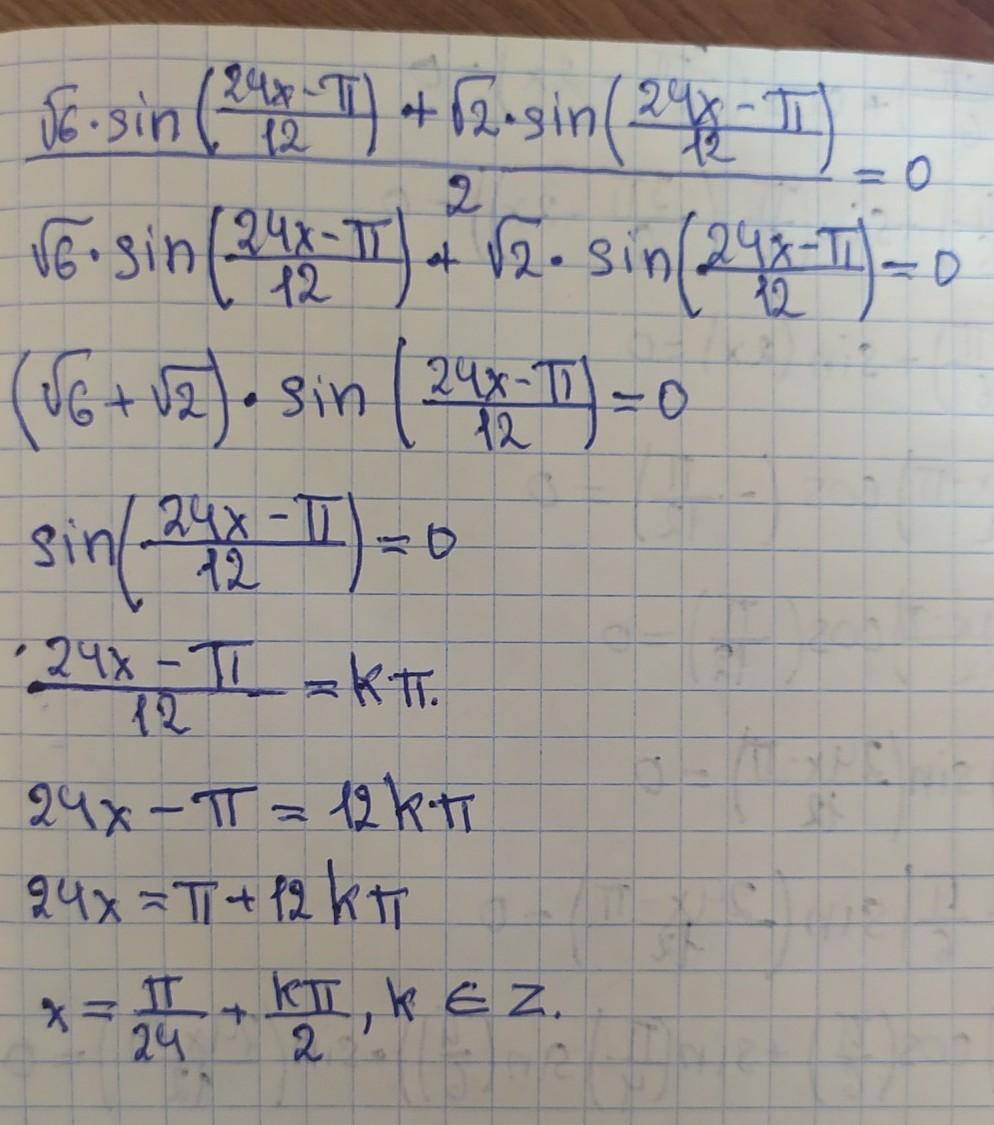 (√6·sin((24x-π)/12)+√2·sin((24x-π)/12))/2=0
√6·sin((24x-π)/12)+√2·sin((24x-π)/12)=0
(√6+√2)·sin((24x-π)/12)=0
sin((24x-π)/12)=0
(24x-π)/12=kπ.
24x-π=12kπ
24x=π+12kπ
x=π/24+kπ/2, k∈Z.